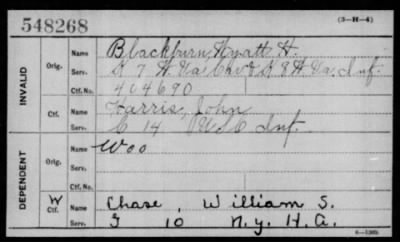 548268
(3-H-4)
INVALID
Orig.
Name Blackburn, Hyatt H.
Serv. K 7 W. Va. Cav & K 3 W. Va. Inf.
Ctf. No. 404690
Ctf.
Name Harris, John
Serv. C 14 U.S.C. Inf.
DEPENDENT
Orig.
Name Woo
Serv.
Ctf. No.
W Ctf.
Name Chase, William S.
Serv. I 10 N.Y. H.A.